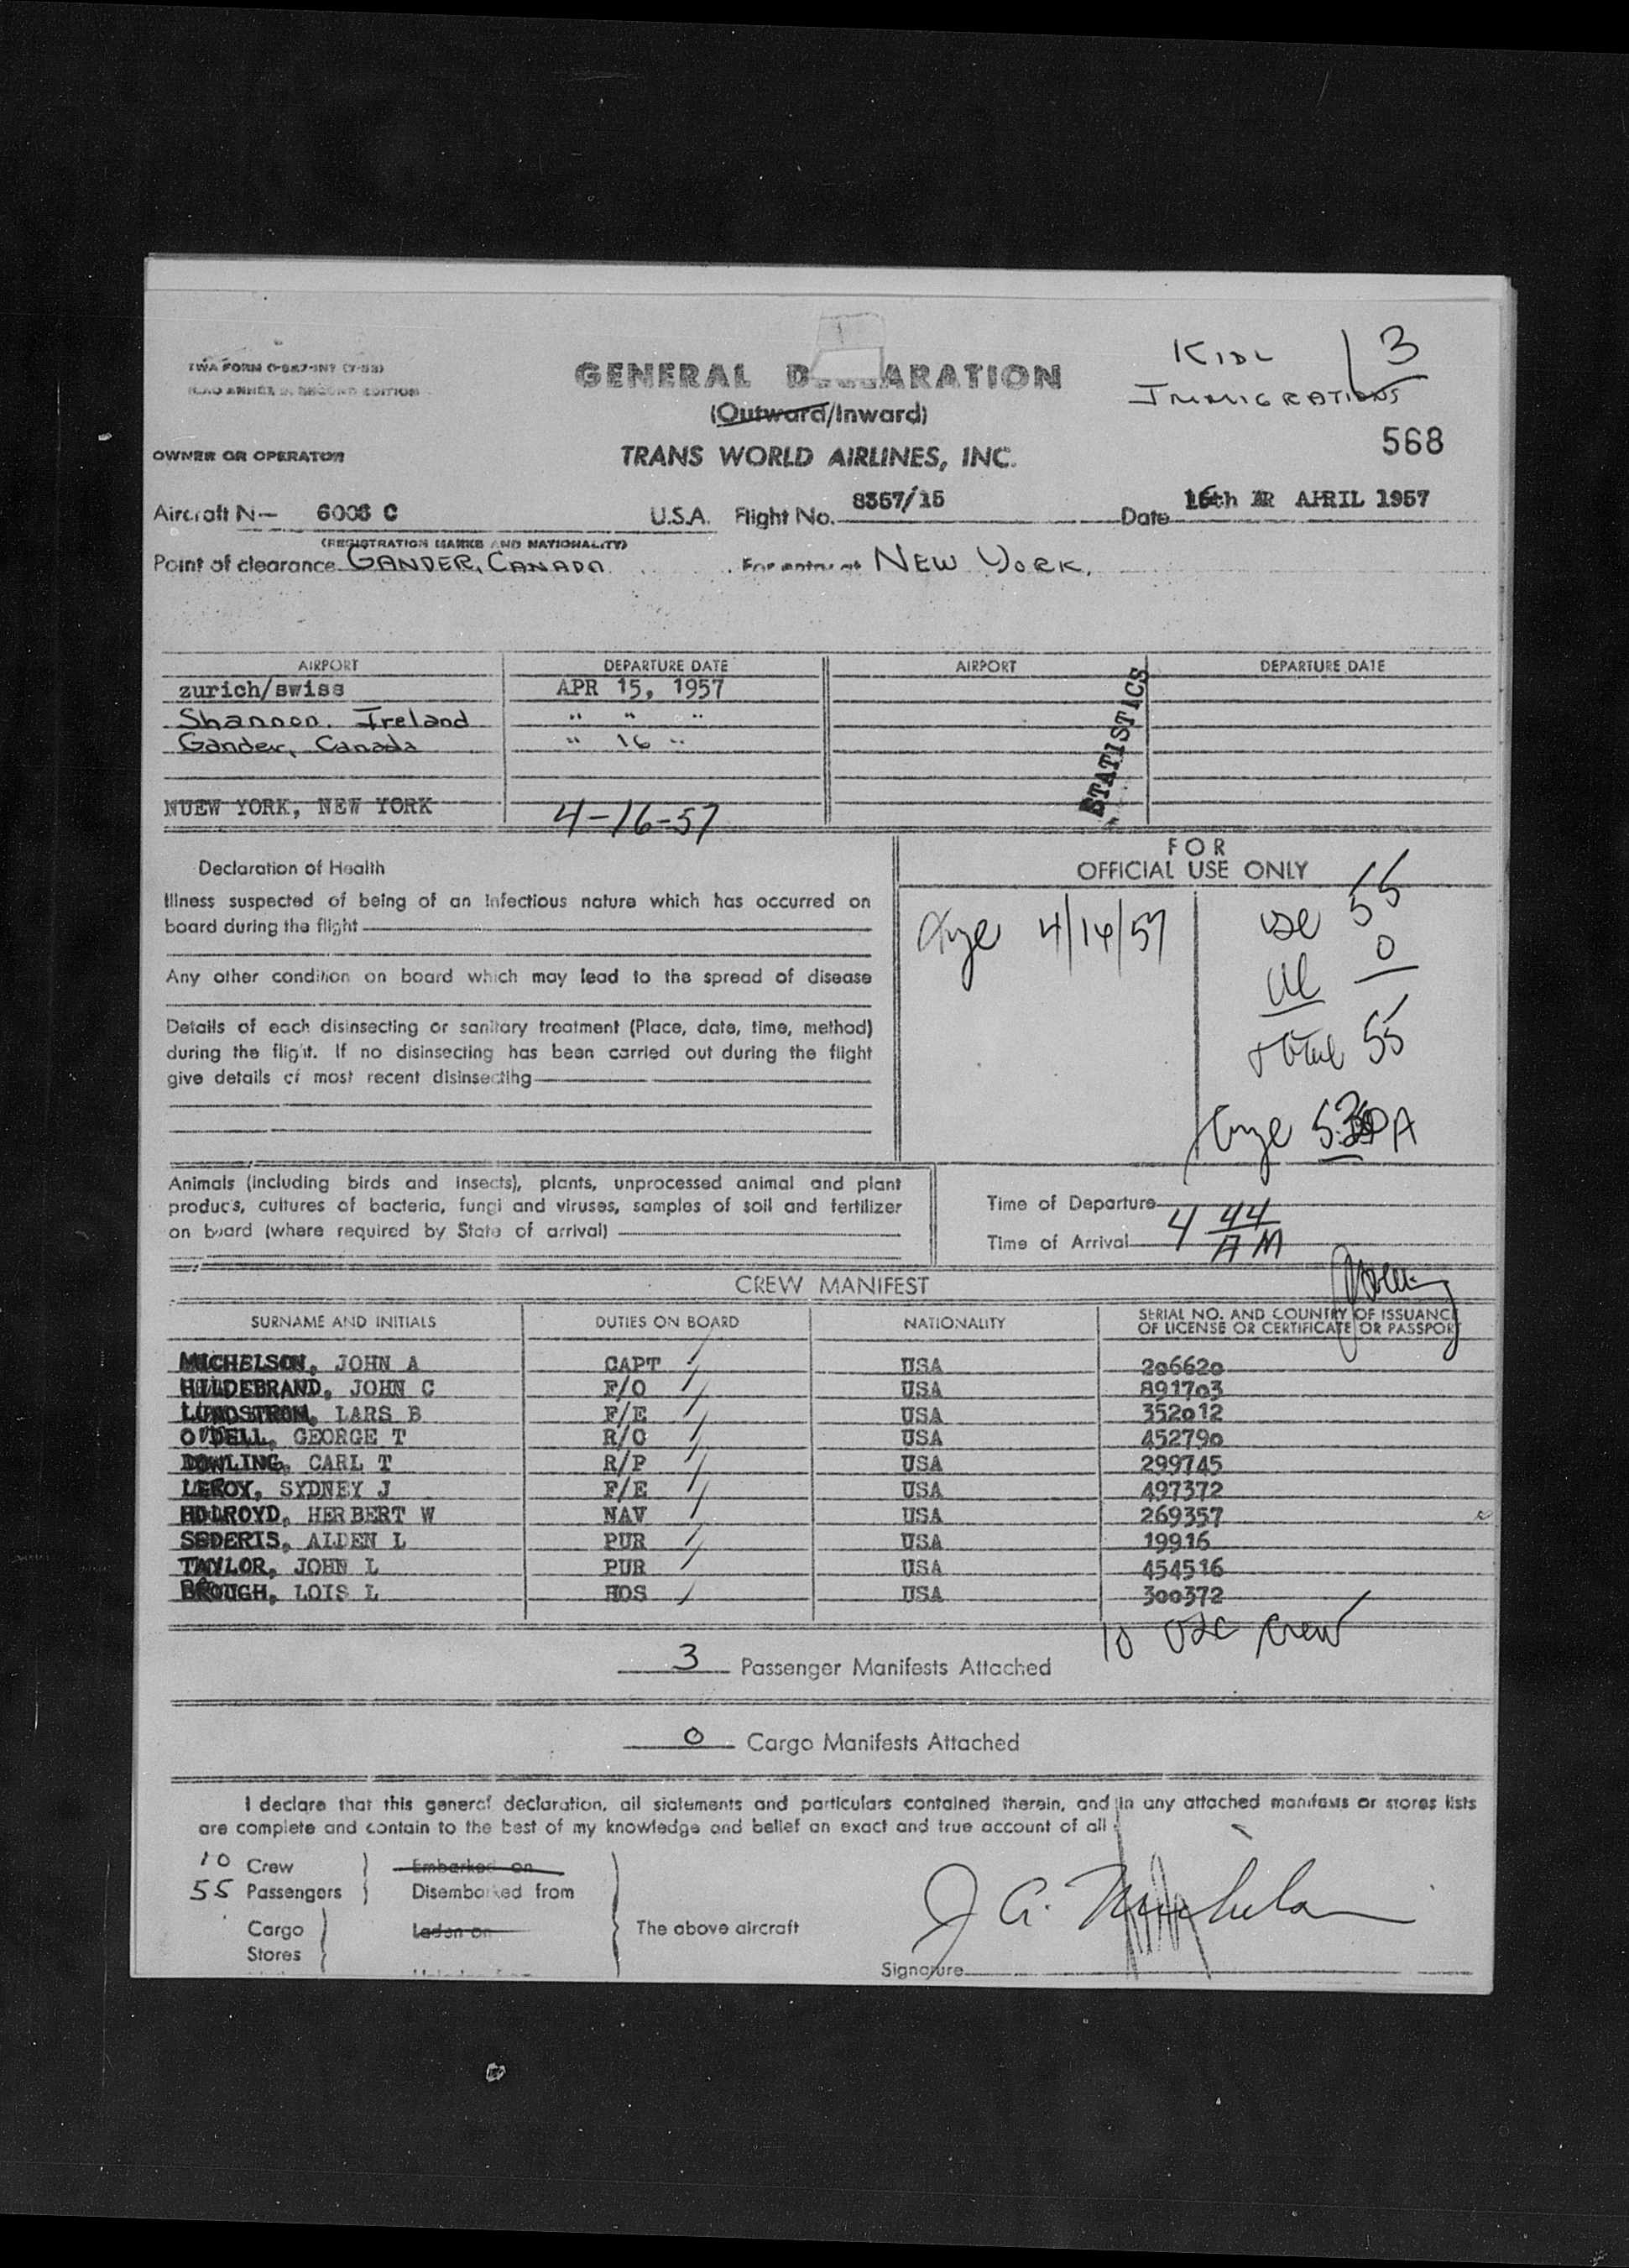 KIDL 13
IMMIGRATIONS
TWA FORM
GENERAL DECLARATION
(Outward/Inward)
568
OWNER OR OPERATOR
TRANS WORLD AIRLINES, INC.
Aircraft N— 6006 C U.S.A. Flight No. 8357/15 Date 16th APRIL 1957
(REGISTRATION MARKS AND NATIONALITY)
Point of clearance GANDER, CANADA For entry at NEW YORK.
AIRPORT DEPARTURE DATE AIRPORT DEPARTURE DATE
zurich/swiss APR 15, 1957
Shannon. Ireland " " "
Gander, Canada " 16 "
STATISTICS
NUEW YORK, NEW YORK 4-16-57
FOR
OFFICIAL USE ONLY
Declaration of Health
Illness suspected of being of an infectious nature which has occurred on
board during the flight
Any other condition on board which may lead to the spread of disease
Details of each disinsecting or sanitary treatment (Place, date, time, method)
during the flight. If no disinsecting has been carried out during the flight
give details of most recent disinsecting
4/16/57
usc 55
0
total 55
Animals (including birds and insects), plants, unprocessed animal and plant
products, cultures of bacteria, fungi and viruses, samples of soil and fertilizer
on board (where required by State of arrival)
Time of Departure
Time of Arrival 4 44 AM
CREW MANIFEST
SURNAME AND INITIALS DUTIES ON BOARD NATIONALITY SERIAL NO. AND COUNTRY OF ISSUANCE
OF LICENSE OR CERTIFICATE OR PASSPORT
MICHELSON, JOHN A CAPT USA 206620
HILDEBRAND, JOHN C F/O USA 891703
LUNDSTROM, LARS B F/E USA 352012
O'DELL, GEORGE T R/O USA 452790
DOWLING, CARL T R/P USA 299745
LEROY, SYDNEY J F/E USA 497372
HOLROYD, HERBERT W NAV USA 269357
SEDERIS, ALDEN L PUR USA 19916
TAYLOR, JOHN L PUR USA 454516
BROUGH, LOIS L HOS USA 300372
10 USC Crew
3 Passenger Manifests Attached
0 Cargo Manifests Attached
I declare that this general declaration, all statements and particulars contained therein, and in any attached manifests or stores lists
are complete and contain to the best of my knowledge and belief an exact and true account of all
10 Crew Embarked on
55 Passengers Disembarked from
Cargo Laden on The above aircraft
Stores
J A. Michelson
Signature